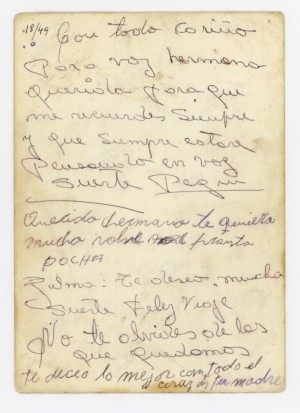 18/49
Con todo cariño
Para voz hermana
querida para que
me recuerdes siempre
y que siempre estare
Pensando en voz
Suerte
Querida hermana te quiere
mucha
POCHA
Te deseo mucha
Suerte Feliz Viaje
No te olvides de los
que quedamos
te deceo lo mejor con todo el
corazon tu madre